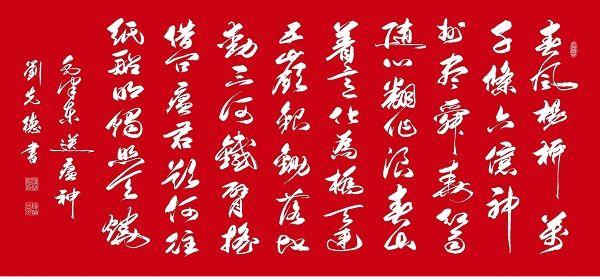 春风杨柳萬
千條六億神
州尽舜堯紅雨
隨心翻作浪青山
着意化為橋天連
五嶺銀鋤落地
動三河鐵臂摇
借问瘟君欲何往
纸船明燭照天燒
毛泽东送瘟神
劉德書